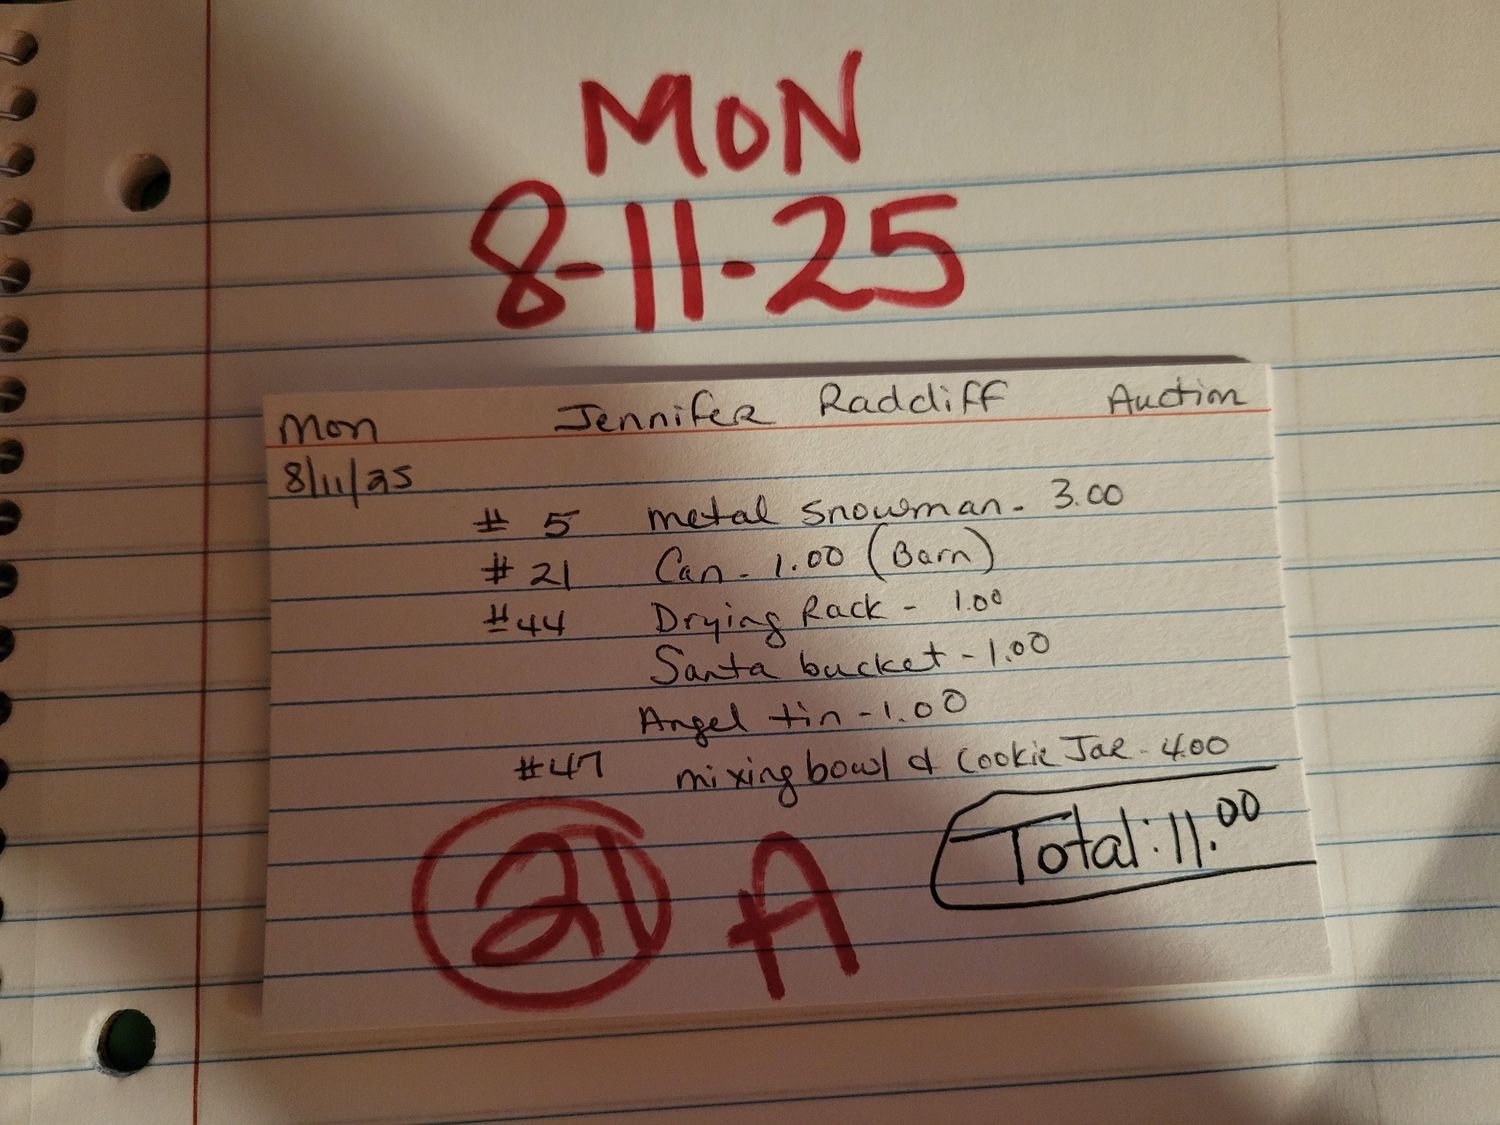 MON
8-11-25
Mon Jennifer Radcliff Auction
8/11/25
# 5 metal snowman - 3.00
# 21 Can - 1.00 (Barn)
#44 Drying Rack - 1.00
Santa bucket - 1.00
Angel tin - 1.00
#47 mixing bowl & Cookie Jar - 4.00
Total: 11.00
21 A